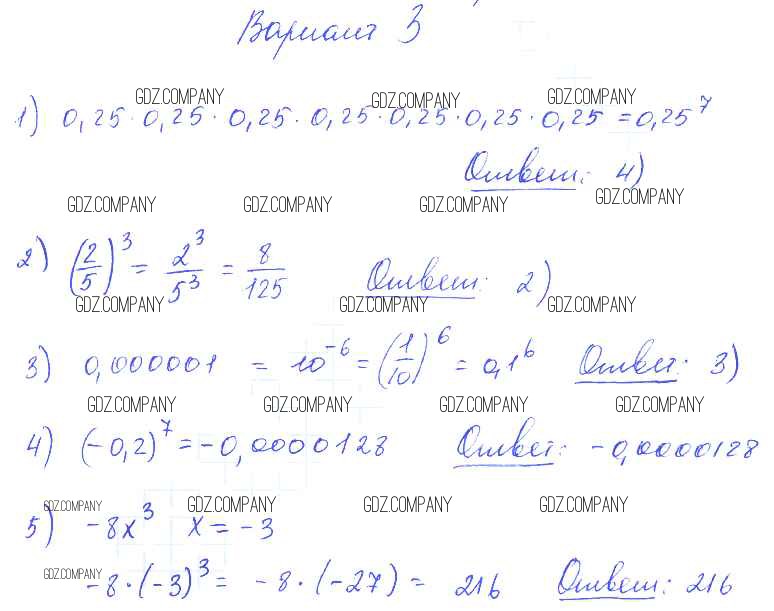 Вариант 3
GDZ.COMPANY GDZ.COMPANY GDZ.COMPANY
1) 0,25 · 0,25 · 0,25 · 0,25 · 0,25 · 0,25 · 0,25 = 0,25⁷
Ответ: 4)
GDZ.COMPANY GDZ.COMPANY GDZ.COMPANY GDZ.COMPANY
2) (2/5)³ = 2³/5³ = 8/125 Ответ: 2)
GDZ.COMPANY GDZ.COMPANY GDZ.COMPANY
3) 0,000001 = 10⁻⁶ = (1/10)⁶ = 0,1⁶ Ответ: 3)
GDZ.COMPANY GDZ.COMPANY GDZ.COMPANY GDZ.COMPANY
4) (-0,2)⁷ = -0,0000128 Ответ: -0,0000128
GDZ.COMPANY GDZ.COMPANY GDZ.COMPANY GDZ.COMPANY
5) -8x³ x = -3
GDZ.COMPANY
-8 · (-3)³ = -8 · (-27) = 216 Ответ: 216